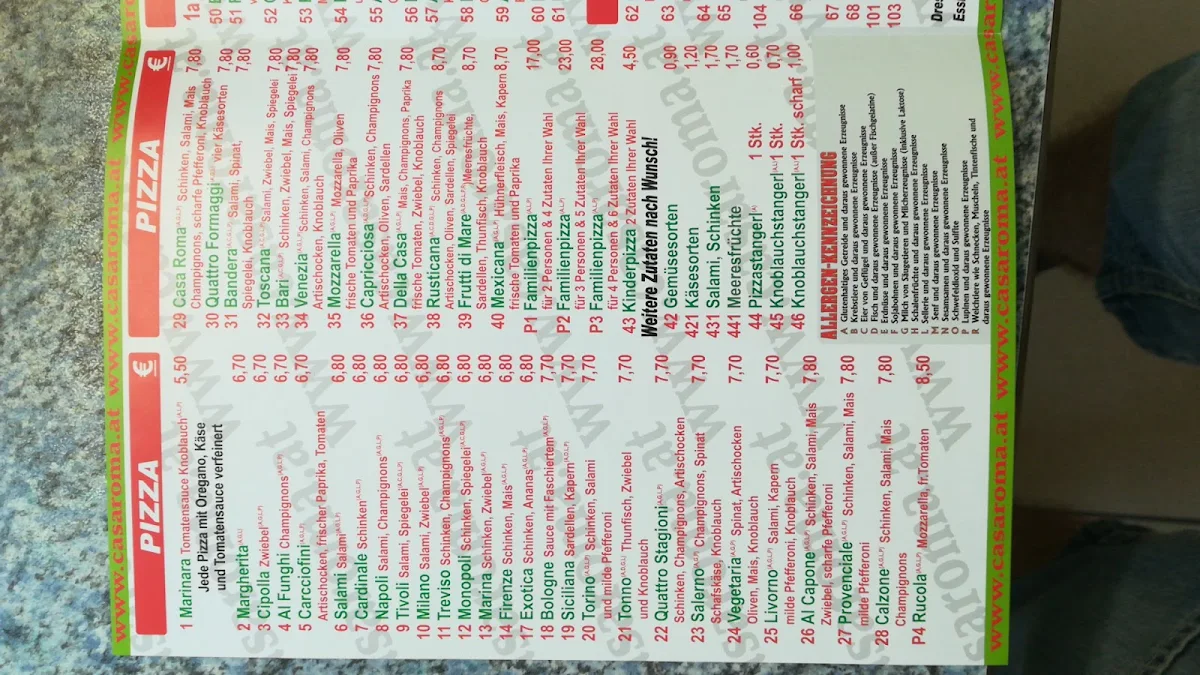 www.casaroma.at www.casaroma.at www.casaroma.at
PIZZA €
1 Marinara Tomatensauce Knoblauch(A,G,L,P) 5,50
Jede Pizza mit Oregano, Käse
und Tomatensauce verfeinert
2 Margherita(A,G,L) 6,70
3 Cipolla Zwiebel(A,G,L,P) 6,70
4 Al Funghi Champignons(A,G,L,P) 6,70
5 Carcciofini(A,G,L,P) 6,70
Artischocken, frischer Paprika, Tomaten
6 Salami Salami(A,G,L,P) 6,80
7 Cardinale Schinken(A,G,L,P) 6,80
8 Napoli Salami, Champignons(A,G,L,P) 6,80
9 Tivoli Salami, Spiegelei(A,C,G,L,P) 6,80
10 Milano Salami, Zwiebel(A,G,L,P) 6,80
11 Treviso Schinken, Champignons(A,G,L,P) 6,80
12 Monopoli Schinken, Spiegelei(A,C,G,L,P) 6,80
13 Marina Schinken, Zwiebel(A,G,L,P) 6,80
14 Firenze Schinken, Mais(A,G,L,P) 6,80
17 Exotica Schinken, Ananas(A,G,L,P) 6,80
18 Bologne Sauce mit Faschiertem(A,G,L,P) 7,70
19 Siciliana Sardellen, Kapern(A,D,G,L,P) 7,70
20 Torino(A,G,L,P) Schinken, Salami 7,70
und milde Pfefferoni
21 Tonno(A,D,G,L,P) Thunfisch, Zwiebel 7,70
und Knoblauch
22 Quatro Stagioni(A,G,L,P) 7,70
Schinken, Champignons, Artischocken
23 Salerno(A,G,L,P) Champignons, Spinat 7,70
Schafskäse, Knoblauch
24 Vegetaria(A,G,L,P) Spinat, Artischocken 7,70
Oliven, Mais, Knoblauch
25 Livorno(A,G,L,P) Salami, Kapern 7,70
milde Pfefferoni, Knoblauch
26 Al Capone(A,G,L,P) Schinken, Salami, Mais 7,80
Zwiebel, scharfe Pfefferoni
27 Provenciale(A,G,L,P) Schinken, Salami, Mais 7,80
milde Pfefferoni
28 Calzone(A,G,L,P) Schinken, Salami, Mais 7,80
Champignons
P4 Rucola(A,G,L,P) Mozzarella, fr.Tomaten 8,50
PIZZA €
29 Casa Roma(A,G,L,P) Schinken, Salami, Mais 7,80
Champignons, scharfe Pfefferoni, Knoblauch
30 Quatro Formaggi(A,G,L,P) vier Käsesorten 7,80
31 Bandera(A,C,G,L,P) Salami, Spinat, 7,80
Spiegelei, Knoblauch
32 Toscana(A,C,G,L,P) Salami, Zwiebel, Mais, Spiegelei 7,80
33 Bari(A,C,G,L,P) Schinken, Zwiebel, Mais, Spiegelei 7,80
34 Venezia(A,G,L,P) Schinken, Salami, Champignons 7,80
Artischocken, Knoblauch
35 Mozzarella(A,G,L,P) Mozzarella, Oliven 7,80
frische Tomaten und Paprika
36 Capricciosa(A,D,G,L,P) Schinken, Champignons 7,80
Artischocken, Oliven, Sardellen
37 Della Casa(A,G,L,P) Mais, Champignons, Paprika 7,80
frische Tomaten, Zwiebel, Knoblauch
38 Rusticana(A,C,D,G,L,P) Schinken, Champignons 8,70
Artischocken, Oliven, Sardellen, Spiegelei
39 Frutti di Mare(A,D,G,L,P,R) Meeresfrüchte, 8,70
Sardellen, Thunfisch, Knoblauch
40 Mexicana(A,G,L,P) Hühnerfleisch, Mais, Kapern 8,70
frische Tomaten und Paprika
P1 Familienpizza(A,G,L,P) 17,00
für 2 Personen & 4 Zutaten Ihrer Wahl
P2 Familienpizza(A,G,L,P) 23,00
für 3 Personen & 5 Zutaten Ihrer Wahl
P3 Familienpizza(A,G,L,P) 28,00
für 4 Personen & 6 Zutaten Ihrer Wahl
43 Kinderpizza 2 Zutaten Ihrer Wahl 4,50
Weitere Zutaten nach Wunsch!
42 Gemüsesorten 0,90
421 Käsesorten 1,20
431 Salami, Schinken 1,70
441 Meeresfrüchte 1,70
44 Pizzastangerl 1 Stk. 0,60
45 Knoblauchstangerl(A,L) 1 Stk. 0,70
46 Knoblauchstangerl(A,L) 1 Stk. scharf 1,00
ALLERGEN-KENNZEICHNUNG
A Glutenhaltiges Getreide und daraus gewonnene Erzeugnisse
B Krebstiere und daraus gewonnene Erzeugnisse
C Eier von Geflügel und daraus gewonnene Erzeugnisse
D Fisch und daraus gewonnene Erzeugnisse (außer Fischgelatine)
E Erdnüsse und daraus gewonnene Erzeugnisse
F Sojabohnen und daraus gewonnene Erzeugnisse
G Milch von Säugetieren und Milcherzeugnisse (inklusive Laktose)
H Schalenfrüchte und daraus gewonnene Erzeugnisse
L Sellerie und daraus gewonnene Erzeugnisse
M Senf und daraus gewonnene Erzeugnisse
N Sesamsamen und daraus gewonnene Erzeugnisse
O Schwefeldioxid und Sulfite
P Lupinen und daraus gewonnene Erzeugnisse
R Weichtiere wie Schnecken, Muscheln, Tintenfische und
daraus gewonnene Erzeugnisse
1a
50
51
52
53
54
55
56
57
58
59
60
61
62
63
64
65
104
66
67
68
101
103
Dres
Essi
www.casaroma.at www.casaroma.at www.casar